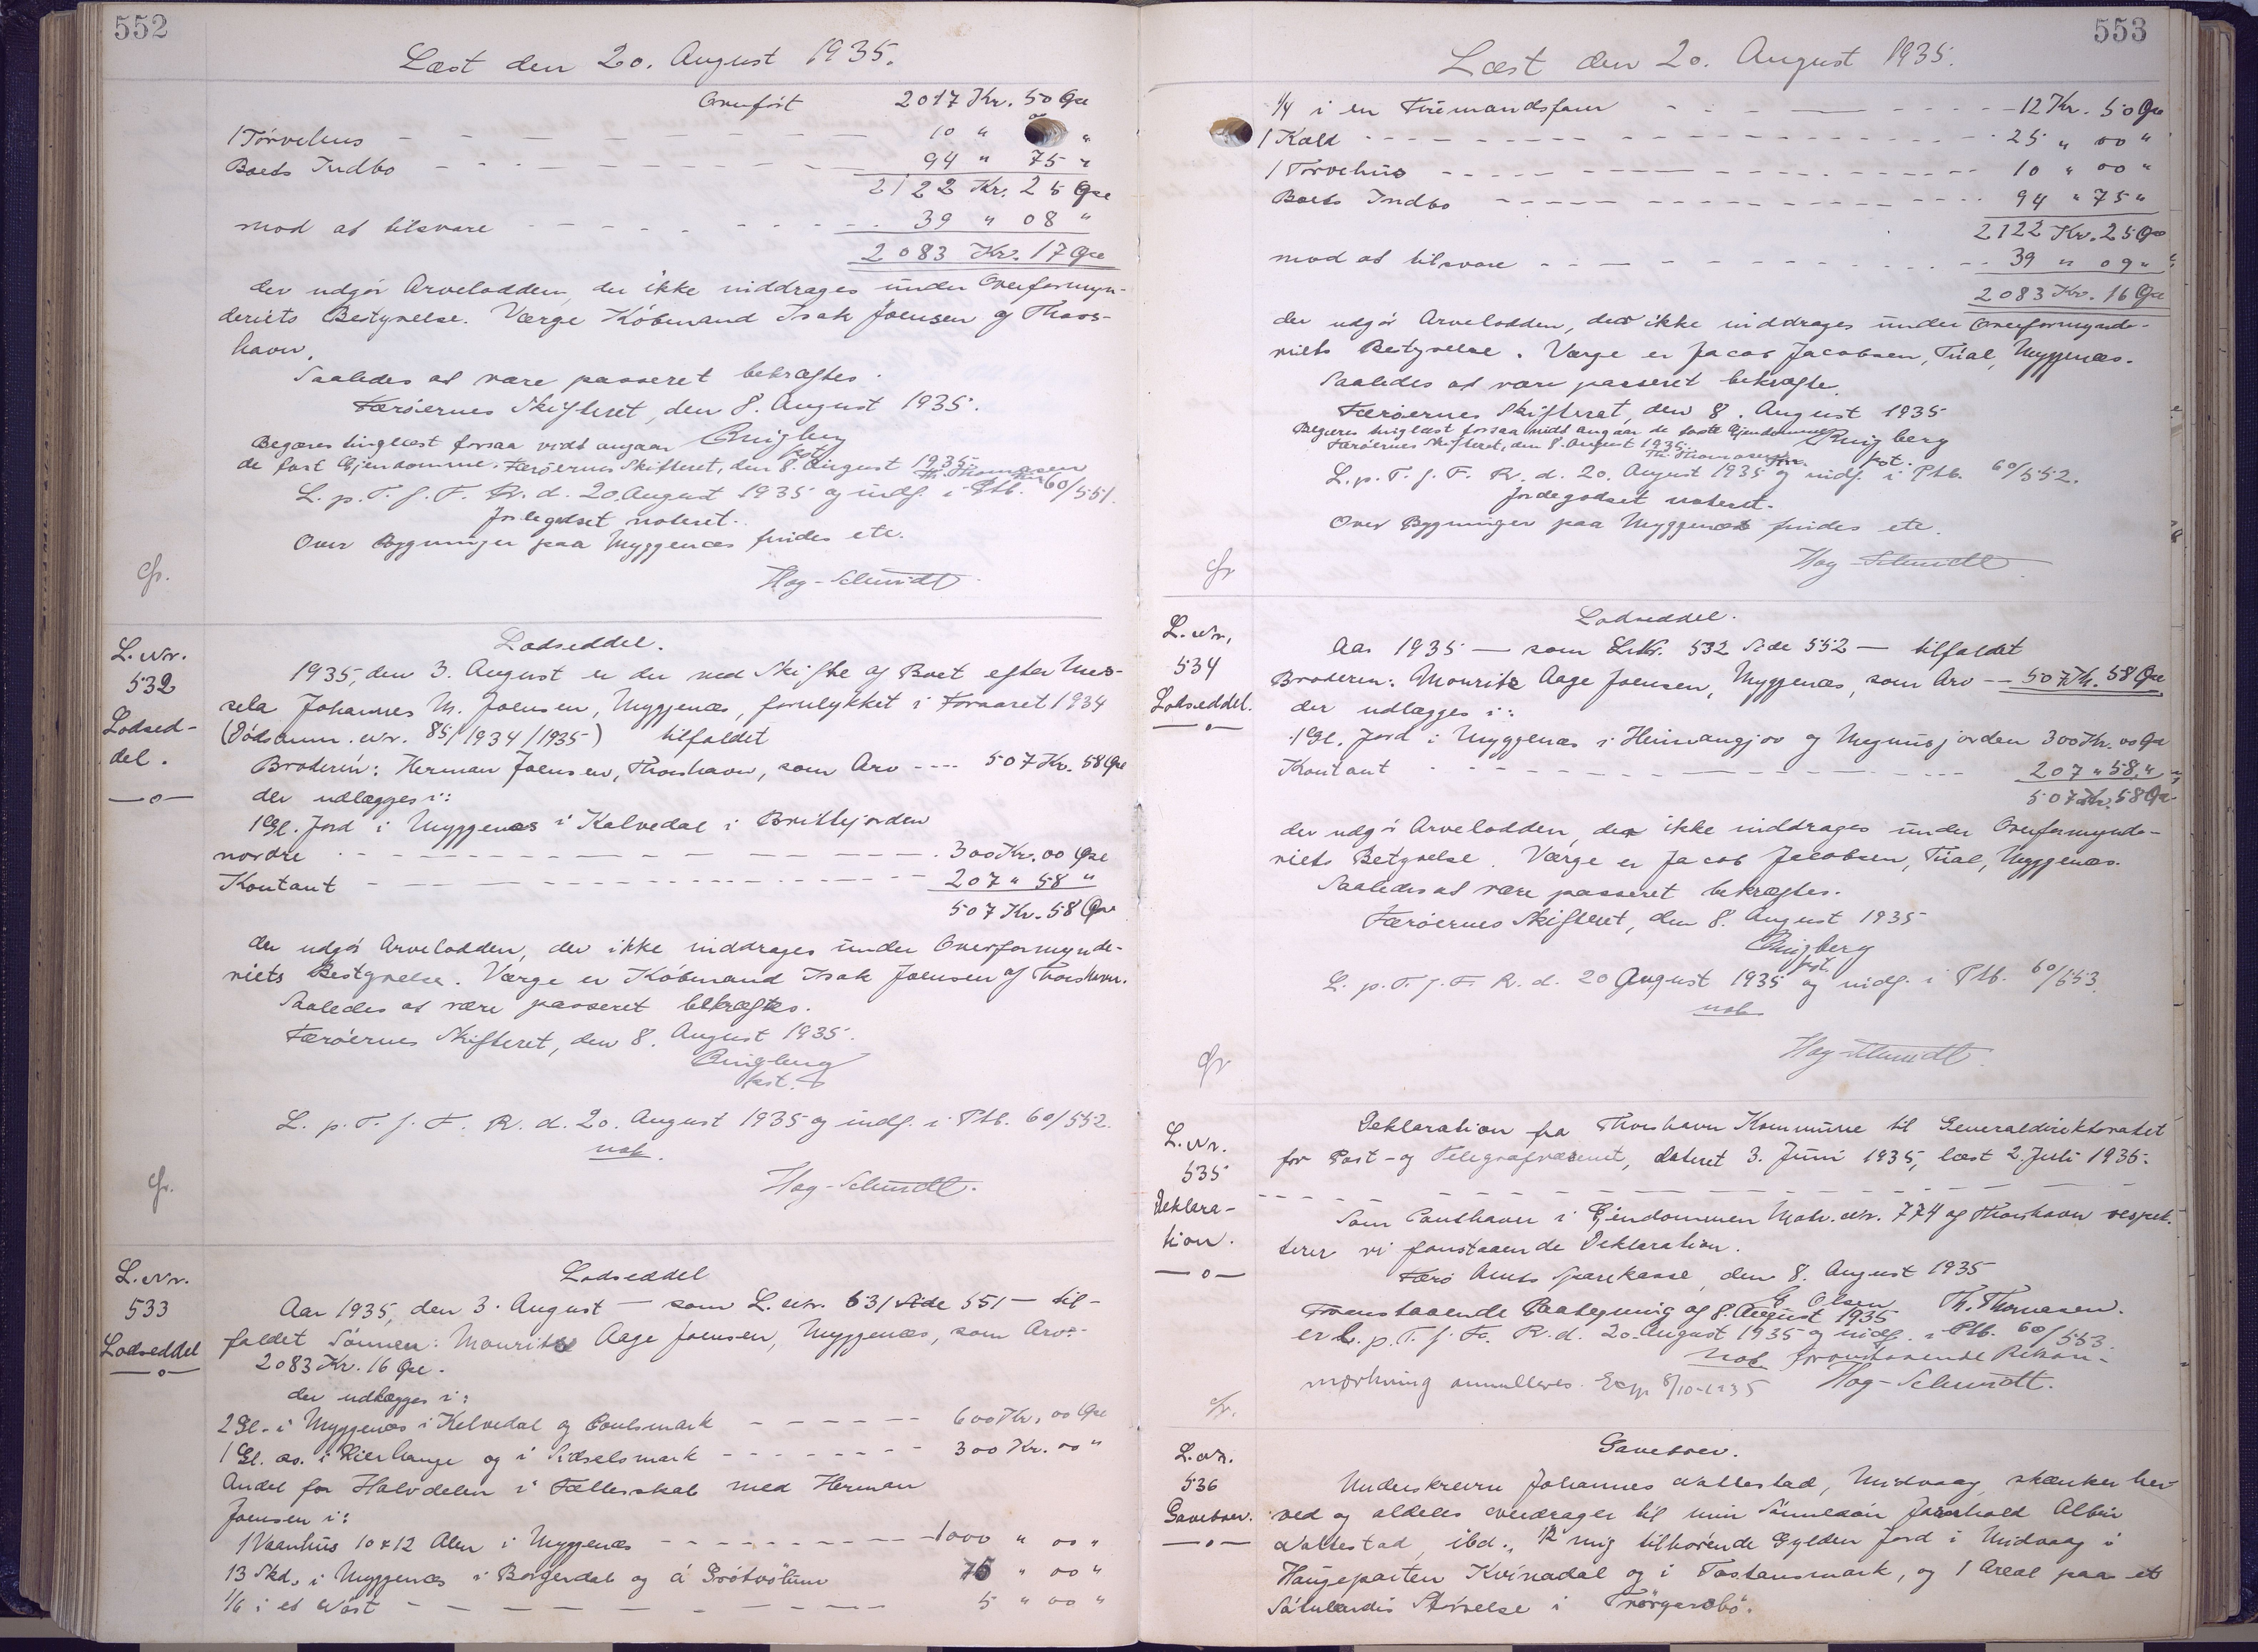 552
Læst den 20. August 1935.
Overført 2017 Kr. 50 Øre
1 Tørvehus - - - 10 " "
Boets Indbo - - - 94 " 75 "
2122 Kr. 25 Øre
mod at tilsvare - - - 39 " 08 "
2083 Kr. 17 Øre
der udgør Arvelodden, der ikke inddrages under Overformyn-
deriets Bestyrelse. Værge Købmand Isak Joensen af Thors-
havn.
Saaledes at være passeret bekræftes.
Færøernes Skifteret, den 8. August 1935.
Begæres tinglæst forsaa vidt angaar
kst.
de fast Ejendomme. Færøernes Skifteret, den 8. August 1935
Th. Thomasen
L. p. T. f. F. R. d. 20. August 1935 og indf. i Ptb. 60/551.
Jordegodset noteret.
Over Bygninger paa Myggenæs findes etc.
Hag-Schmidt.
L. Nr.
532
Lodsed-
del.
—o—
Lodseddel.
1935, den 3. August er der ved Skifte af Boet efter Ung-
Johannes M. Joensen, Myggenæs, forulykket i Foraaret 1934
(Dødsanm. Nr. 85/1934/1935) tilfaldet
Broderen: Herman Joensen, Thorshavn, som Arv - - - 507 Kr. 58 Øre
der udlægges i:
1 Gl. Jord i Myggenæs i Kalvedal i
nordre - - - 300 Kr. 00 Øre
Kontant - - - 207 " 58 "
507 Kr. 58 Øre
der udgør Arvelodden, der ikke inddrages under Overformynde-
riets Bestyrelse. Værge er Købmand Isak Joensen af Thorshavn.
Saaledes at være passeret bekræftes.
Færøernes Skifteret, den 8. August 1935.
kst.
L. p. T. f. F. R. d. 20. August 1935 og indf. i Ptb. 60/552.
not.
Hag-Schmidt.
L. Nr.
533
Lodseddel
—o—
Lodseddel
Aar 1935, den 3. August — som L. Nr. 531 Side 551 — til-
faldet Sønnen: Mouritz Aage Joensen, Myggenæs, som Arv:
2083 Kr. 16 Øre.
der udlægges i:
2 Gl. i Myggenæs i Kelvedal og Poulsmark - - - 600 Kr. 00 Øre
1 Gl. do. i og i Sidselsmark - - - 300 Kr. 00 "
Andel for Halvdelen i Fællesskab med Herman
Joensen i:
1 Vaanhus 10 x 12 Alen i Myggenæs - - - 1000 " 00 "
13 Skd. i Myggenæs i Borgerdal og á - - - 75 " 00 "
1/6 i et Nøst - - - 5 " 00 "
553
Læst den 20. August 1935.
1/4 i en Firemandsfar - - - 12 Kr. 50 Øre
1 Kald - - - 25 " 00 "
1 Tørvehus - - - 10 " 00 "
Boets Indbo - - - 94 " 75 "
2122 Kr. 25 Øre
mod at tilsvare - - - 39 " 09 "
2083 Kr. 16 Øre
der udgør Arvelodden, der ikke inddrages under Overformynde-
riets Bestyrelse. Værge er Jacob Jacobsen, Myggenæs.
Saaledes at være passeret bekræfte.
Færøernes Skifteret, den 8. August 1935
Begæres tinglæst forsaa vidt angaar de faste Ejendomme
Færøernes Skifteret, den 8. August 1935.
Th. Thomasen kst.
L. p. T. f. F. R. d. 20. August 1935 og indf. i Ptb. 60/552.
Jordegodset noteret.
Over Bygninger paa Myggenæs findes etc.
Hag-Schmidt
L. Nr.
534
Lodseddel.
—o—
Lodseddel.
Aar 1935 — som L. Nr. 532 Side 552 — tilfaldet
Broderen: Mouritz Aage Joensen, Myggenæs, som Arv — 507 Kr. 58 Øre
der udlægges i:
1 Gl. Jord i Myggenæs i og 300 Kr. 00 Øre
Kontant - - - 207 " 58 "
507 Kr. 58 Øre
der udgør Arvelodden, der ikke inddrages under Overformynde-
riets Betyrelse. Værge er Jacob Jacobsen, Myggenæs.
Saaledes at være passeret bekræftes.
Færøernes Skifteret, den 8. August 1935
kst.
L. p. T. f. F. R. d. 20 August 1935 og indf. i Ptb. 60/553.
not.
Hag-Schmidt
L. Nr.
535
Deklara-
tion.
—o—
Deklaration fra Thorshavn Kommune til Generaldirektoratet
for Post- og Telegrafvæsenet, dateret 3. Juni 1935, læst 2. Juli 1935.
Som Panthaver i Ejendommen Matr. Nr. 774 af Thorshavn respek-
terer vi foranstaaende Deklaration.
Færø Amts Sparekasse, den 8. August 1935
G. Olsen Th. Thomasen.
Foranstaaende Paategning af 8. August 1935
er L. p. T. f. F. R. d. 20. August 1935 og indf. i Ptb. 60/553.
not. foranstaaende Retsan-
mærkning annulleres. Exp. 8/10-1935 Hag-Schmidt.
L. Nr.
536
Gavebrev.
—o—
Gavebrev.
Underskrevne Johannes Nattestad, Midvaag, skænker her-
ved og aldeles overdrager til min Sønnesøn Albin
Nattestad, ibd., 1/2 mig tilhørende Gylden Jord i Midvaag i
Haugeparten Kvínadal og i Tostansmark, og 1 Areal paa et
Størrelse i